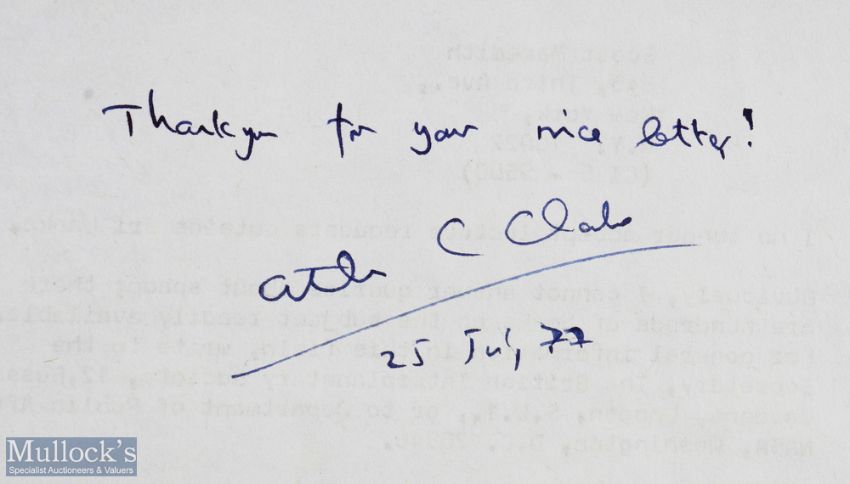 Thankyou for your nice letter!
Arthur C Clarke
25 Jul, 77
Scott Meredith
845, Third Ave.,
New York,
N.Y. 10022
I no longer accept lecture requests outside Sri Lanka.
Obviously, I cannot answer queries about
are hundreds of books on the subject readily available.
for general information in this field, write to the
Secretary, The British Interplanetary Society, 12, 
Gardens, London, S.W.1., or to Department of Public
NASA, Washington, D.C. 20546.
Mullock's
Specialist Auctioneers & Valuers